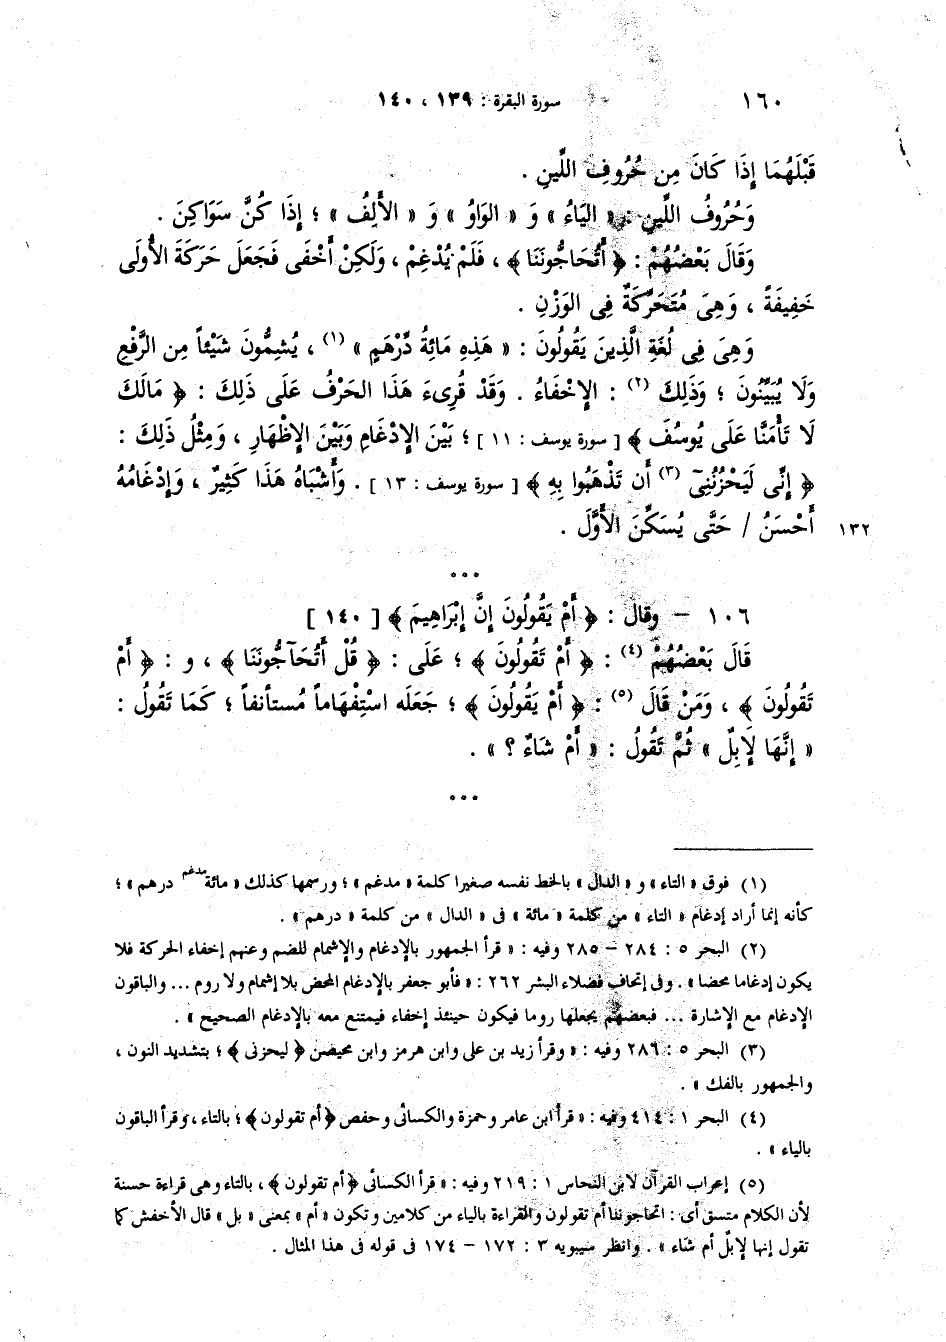 ١٦٠ سورة البقرة : ١٣٩ ، ١٤٠
قَبْلَهُمَا إِذَا كَانَ مِن حُرُوفِ اللِّينِ .
وَحُرُوفُ اللِّينِ : « اليَاءُ » وَ « الوَاوُ » وَ « الأَلِفُ » ؛ إِذَا كُنَّ سَوَاكِنَ .
وَقَالَ بَعْضُهُمْ : ﴿ أَتُحَاجُّونَنَا ﴾ ، فَلَمْ يُدْغِمْ ، وَلَكِنْ أَخْفَى فَجَعَلَ حَرَكَةَ الأُولَى
خَفِيفَةً ، وَهِىَ مُتَحَرِّكَةٌ فِى الوَزْنِ .
وَهِىَ فِى لُغَةِ الَّذِينَ يَقُولُونَ : « هَذِهِ مَائِةُ دِّرْهَمٍ » (١) ، يُشِمُّونَ شَيْئاً مِن الرَّفْعِ
وَلَا يُبَيِّنُونَ ؛ وَذَلِكَ (٢) : الإِخْفَاءُ . وَقَدْ قُرِىءَ هَذَا الحَرْفُ عَلَى ذَلِكَ : ﴿ مَالَكَ
لَا تَأْمَنَّا عَلَى يُوسُفَ ﴾ [ سورة يوسف : ١١ ] ؛ بَيْنَ الإِدْغَامِ وَبَيْنَ الإِظْهَارِ ، وَمِثْلُ ذَلِكَ :
﴿ إِنِّى لَيَحْزُنُنِىٓ (٣) أَن تَذْهَبُوا بِهِ ﴾ [ سورة يوسف : ١٣ ] . وَأَشْبَاهُ هَذَا كَثِيرٌ ، وَإِدْغَامُهُ
١٣٢ أَحْسَنُ / حَتَّى يُسَكِّنَ الأَوَّلَ .
• • •
١٠٦ – وقالَ : ﴿ أَمْ يَقُولُونَ إِنَّ إِبْرَاهِيمَ ﴾ [ ١٤٠ ]
قَالَ بَعْضُهُمْ (٤) : ﴿ أَمْ تَقُولُونَ ﴾ ؛ عَلَى : ﴿ قُلْ أَتُحَآجُّونَنَا ﴾ ، و : ﴿ أَمْ
تَقُولُونَ ﴾ ، وَمَنْ قَالَ (٥) : ﴿ أَمْ يَقُولُونَ ﴾ ؛ جَعَلَه اسْتِفْهَاماً مُستأنفاً ؛ كَمَا تَقُولُ :
« إِنَّهَا لَإِبِلٌ » ثُمَّ تَقُولُ : « أَمْ شَاءٌ ؟ » .
• • •
(١) فوق « التاء » و « الدال » بالخط نفسه صغيرا كلمة « مدغم » ؛ ورسمها كذلك « مائة مدغم درهم » ؛
كأنه إنما أراد إدغام « التاء » من كلمة « مائة » فى « الدال » من كلمة « درهم » .
(٢) البحر ٥ : ٢٨٤ – ٢٨٥ وفيه : « قرأ الجمهور بالإدغام والإشمام للضم وعنهم إخفاء الحركة فلا
يكون إدغاما محضا » . وفى إتحاف فضلاء البشر ٢٦٢ : « فأبو جعفر بالإدغام المحض بلا إشمام ولا روم ... والباقون
الإدغام مع الإشارة ... فبعضهم يجعلها روما فيكون حينئذ إخفاء فيمتنع معه بالإدغام الصحيح » .
(٣) البحر ٥ : ٢٨٦ وفيه : « وقرأ زيد بن على وابن هرمز وابن محيصن ﴿ ليحزنى ﴾ ؛ بتشديد النون ،
والجمهور بالفك » .
(٤) البحر ١ : ٤١٤ وفيه : « قرأ ابن عامر وحمزة والكسائى وحفص ﴿ أم تقولون ﴾ ؛ بالتاء ، وقرأ الباقون
بالياء » .
(٥) إعراب القرآن لابن النحاس ١ : ٢١٩ وفيه : « قرأ الكسائى ﴿ أم تقولون ﴾ ، بالتاء وهى قراءة حسنة
لأن الكلام متسق أى : اتحاجوننا أم تقولون والقراءة بالياء من كلامين وتكون « أم » بمعنى « بل » قال الأخفش كما
تقول إنها لإبلٌ أم شاء » . وانظر سيبويه ٣ : ١٧٢ – ١٧٤ فى قوله فى هذا المثال .